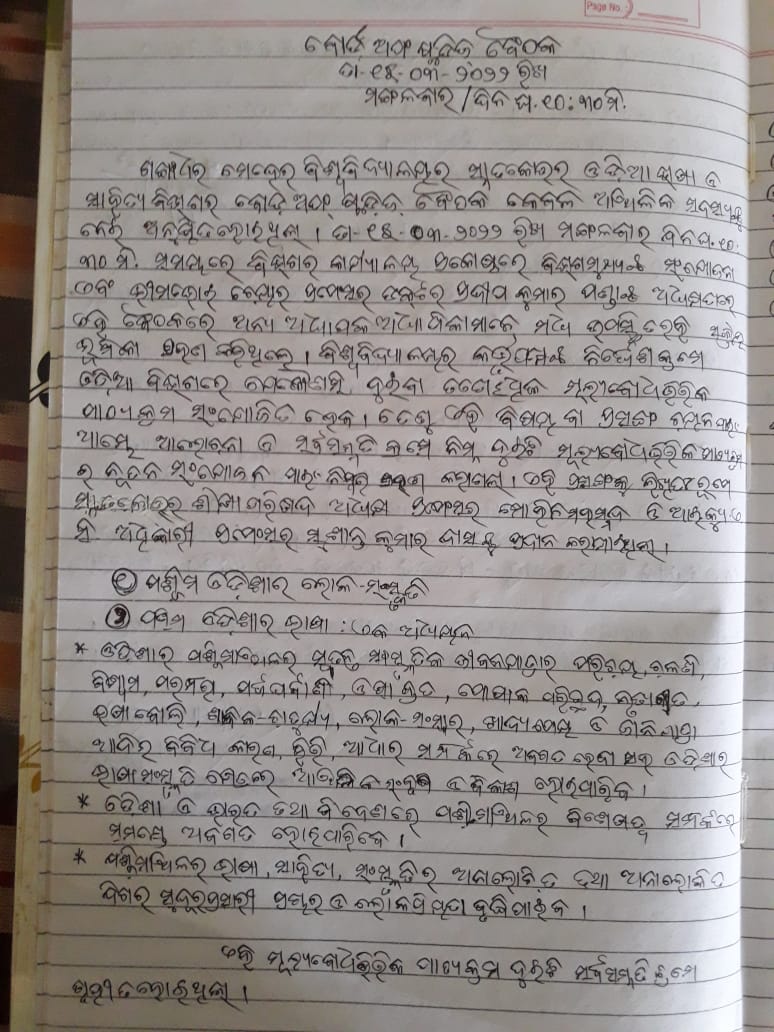 Page No.
ବୋର୍ଡ଼ ଅଫ୍ ଷ୍ଟଡିଜ୍ ବୈଠକ
ତା-୧୫-୦୩-୨୦୨୨ ରିଖ
ମଙ୍ଗଳବାର / ଦିନ ଘ.୧୦:୩୦ମି.
ଗଙ୍ଗାଧର ମେହେର ବିଶ୍ୱବିଦ୍ୟାଳୟର ସ୍ନାତକୋତ୍ତର ଓଡ଼ିଆ ଭାଷା ଓ
ସାହିତ୍ୟ ବିଭାଗର ବୋର୍ଡ଼ ଅଫ୍ ଷ୍ଟଡିଜ୍ ବୈଠକ କେବଳ ଆଭ୍ୟନ୍ତରିକ ସଦସ୍ୟଙ୍କୁ
ନେଇ ଅନୁଷ୍ଠିତ ହୋଇଥିଲା । ତା-୧୫-୦୩-୨୦୨୨ ରିଖ ମଙ୍ଗଳବାର ଦିନ ଘ.୧୦:
୩୦ ମି. ସମୟରେ ବିଭାଗର କାର୍ଯ୍ୟାଳୟ ପ୍ରକୋଷ୍ଠରେ ବିଭାଗମୁଖ୍ୟଙ୍କ ସଂଯୋଜନା
ଏବଂ ଭୀମଭୋଇ ଚେୟାର ପ୍ରଫେସର ଡକ୍ଟର ପ୍ରଦୀପ କୁମାର ପଣ୍ଡାଙ୍କ ଅଧ୍ୟକ୍ଷତାରେ
ଏହି ବୈଠକରେ ଅନ୍ୟ ଅଧ୍ୟାପକ ଅଧ୍ୟାପିକାମାନେ ମଧ୍ୟ ଉପସ୍ଥିତ ରହି
ଭୂମିକା ଗ୍ରହଣ କରିଥିଲେ । ବିଶ୍ୱବିଦ୍ୟାଳୟର କର୍ତ୍ତୃପକ୍ଷଙ୍କ ନିର୍ଦ୍ଦେଶକ୍ରମେ
ଓଡ଼ିଆ ବିଭାଗରେ ଯେକୌଣସି ଦୁଇବା ତତୋଽଧିକ ମୂଲ୍ୟବୋଧଭିତ୍ତିକ
ପାଠ୍ୟକ୍ରମ ସଂଯୋଜିତ ହେବ । ତେଣୁ ଏହି ବିଷୟ ବା ପ୍ରସଙ୍ଗ
ଆମ୍ଭେ ଆଲୋଚନା ଓ ସର୍ବସମ୍ମତି କ୍ରମେ ନିମ୍ନ ଦୁଇଟି ମୂଲ୍ୟବୋଧଭିତ୍ତିକ ପାଠ୍ୟକ୍ରମ
ର ନୂତନ ସଂଯୋଜନ ପାଇଁ ନିଷ୍ପତ୍ତି ଗ୍ରହଣ କରାଗଲା । ଏହି ପ୍ରସଙ୍ଗକୁ ଲିଖିତ ରୂପେ
ସ୍ନାତକୋତ୍ତର ଶିକ୍ଷା ପରିଷଦ ଅଧ୍ୟକ୍ଷ ପ୍ରଫେସର ଓ ଆଇ.କ୍ୟୁ.ଏ
ସି ଅଧିକାରୀ ପ୍ରଫେସର ସୁଶାନ୍ତ କୁମାର ଦାସଙ୍କୁ ପ୍ରଦାନ କରାଯାଇଥିଲା ।
୧ ପଶ୍ଚିମ ଓଡ଼ିଶାର ଲୋକ-ସଂସ୍କୃତି
୨ ପଶ୍ଚିମ ଓଡ଼ିଶାର ଭାଷା : ଏକ ଅଧ୍ୟୟନ
* ଓଡ଼ିଶାର ପଶ୍ଚିମାଞ୍ଚଳର ସାଂସ୍କୃତିକ ଜୀବନଯାତ୍ରାର ପରିଚୟ, ଚଳଣି,
ବିଶ୍ୱାସ, ପରମ୍ପରା, ପର୍ବପର୍ବାଣୀ, ଓଷାବ୍ରତ, ପୋଷାକ ପରିଚ୍ଛଦ, ନୃତ୍ୟଗୀତ,
ଭାଷାବୋଲି, ଶାବ୍ଦିକ-ଚାତୁର୍ଯ୍ୟ, ଲୋକ-ସଂସାର, ଖାଦ୍ୟପେୟ ଓ ଗୀତିନାଟ୍ୟ
ଆଦିର ବିବିଧ କାରଣ, ଭିତ୍ତି, ଆଧାର ସମ୍ପର୍କରେ ଅବଗତ ହେବା ସହ ଓଡ଼ିଶାର
ଭାଷା ସଂସ୍କୃତି କ୍ଷେତ୍ରରେ ଓ ବିକାଶ ହୋଇପାରିବ ।
* ଓଡ଼ିଶା ଓ ଭାରତ ତଥା ବିଦେଶରେ ପଶ୍ଚିମାଞ୍ଚଳର ବିଶେଷତ୍ୱ ସମ୍ପର୍କରେ
ସମସ୍ତେ ଅବଗତ ହୋଇପାରିବେ ।
* ପଶ୍ଚିମାଞ୍ଚଳର ଭାଷା, ସାହିତ୍ୟ, ସଂସ୍କୃତିର ଅନାଲୋଚିତ ତଥା ଅନାଲୋକିତ
ଦିଗର ସୁଦୂରପ୍ରସାରୀ ପ୍ରଚାର ଓ ଲୋକପ୍ରିୟତା ବୃଦ୍ଧିପାଇବ ।
ଏହି ମୂଲ୍ୟବୋଧଭିତ୍ତିକ ପାଠ୍ୟକ୍ରମ ଦୁଇଟି ସର୍ବସମ୍ମତି କ୍ରମେ
ଗୃହୀତ ହୋଇଥିଲା ।